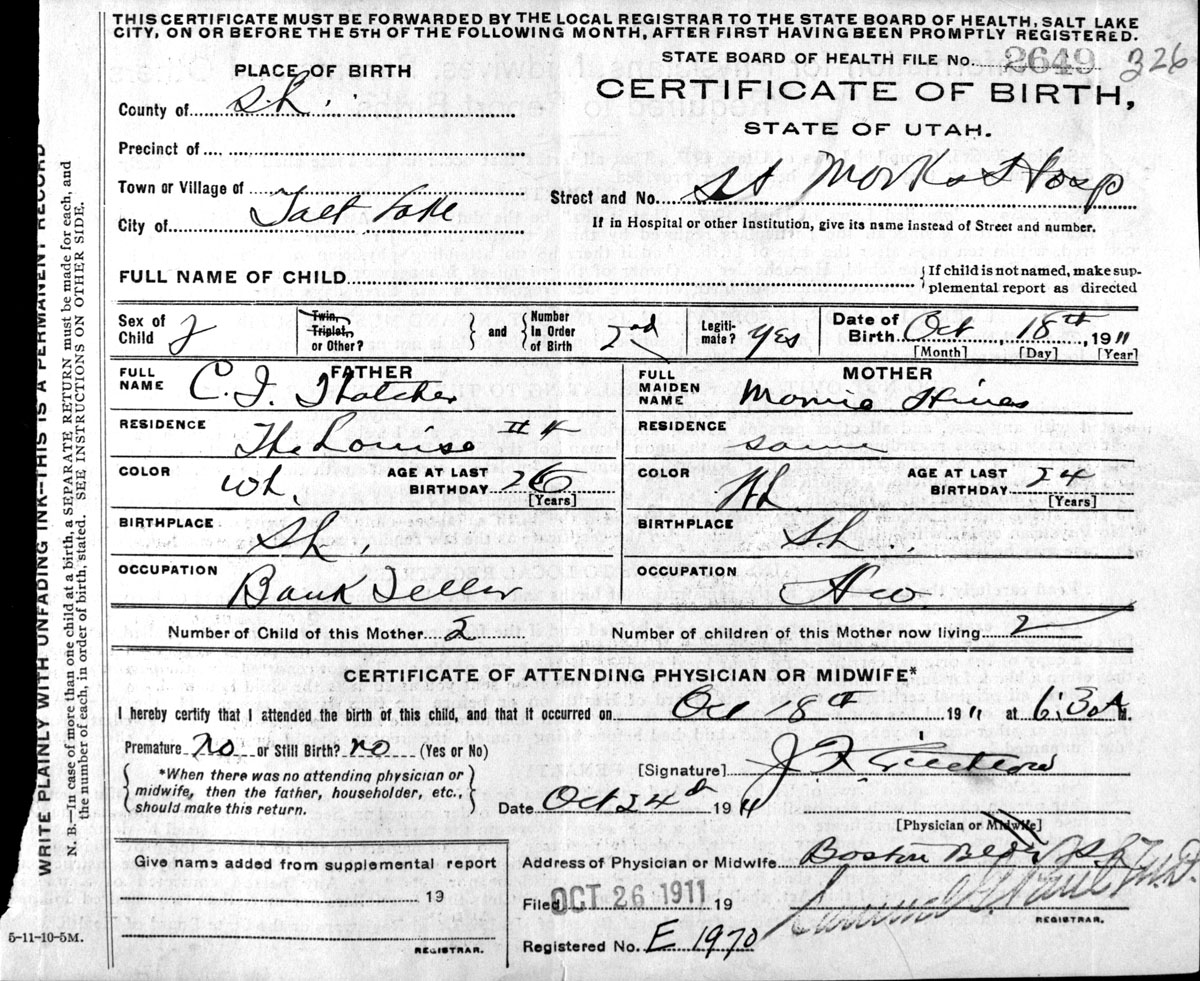 THIS CERTIFICATE MUST BE FORWARDED BY THE LOCAL REGISTRAR TO THE STATE BOARD OF HEALTH, SALT LAKE
CITY, ON OR BEFORE THE 5TH OF THE FOLLOWING MONTH, AFTER FIRST HAVING BEEN PROMPTLY REGISTERED.
STATE BOARD OF HEALTH FILE No. 2649 326
PLACE OF BIRTH
CERTIFICATE OF BIRTH,
STATE OF UTAH.
County of S.L.
Precinct of
Town or Village of
Street and No. St Marks Hosp
City of Salt Lake
If in Hospital or other Institution, give its name instead of Street and number.
FULL NAME OF CHILD
{If child is not named, make sup-
plemental report as directed
Sex of Child
Twin, Triplet, or Other?
} and {
Number In Order of Birth 2nd
Legiti-mate? Yes
Date of Birth Oct 18th, 1911
[Month] [Day] [Year]
FATHER
FULL NAME C. J. Thatcher
MOTHER
FULL MAIDEN NAME Hines
RESIDENCE The Louise #4
RESIDENCE same
COLOR Wh. AGE AT LAST BIRTHDAY 26 [Years]
COLOR Wh. AGE AT LAST BIRTHDAY 24 [Years]
BIRTHPLACE S.L.
BIRTHPLACE S.L.
OCCUPATION Bank Teller
OCCUPATION H.w.
Number of Child of this Mother 2
Number of children of this Mother now living 2
CERTIFICATE OF ATTENDING PHYSICIAN OR MIDWIFE*
I hereby certify that I attended the birth of this child, and that it occurred on Oct 18th 1911 at 6:30 A M.
Premature no or Still Birth? no (Yes or No)
*When there was no attending physician or
midwife, then the father, householder, etc.,
should make this return.
[Signature] J. F.
Date Oct 24th 1911
[Physician or Midwife]
Give name added from supplemental report
19
REGISTRAR.
Address of Physician or Midwife Boston Bldg
Filed OCT 26 1911 19
M.D.
REGISTRAR.
Registered No. E 1970
5-11-10-5M.
WRITE PLAINLY WITH UNFADING INK--THIS IS A PERMANENT RECORD
N. B.—In case of more than one child at a birth, a SEPARATE RETURN must be made for each, and
the number of each, in order of birth, stated. SEE INSTRUCTIONS ON OTHER SIDE.